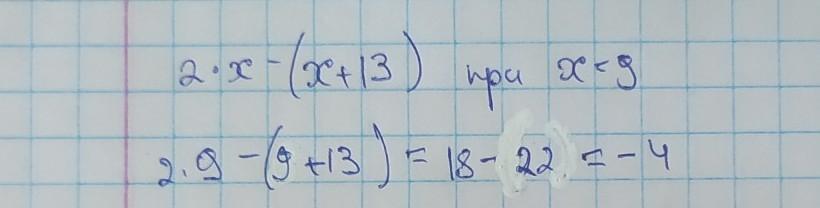 2·x-(x+13) при x=9
2·9-(9+13)=18-22=-4